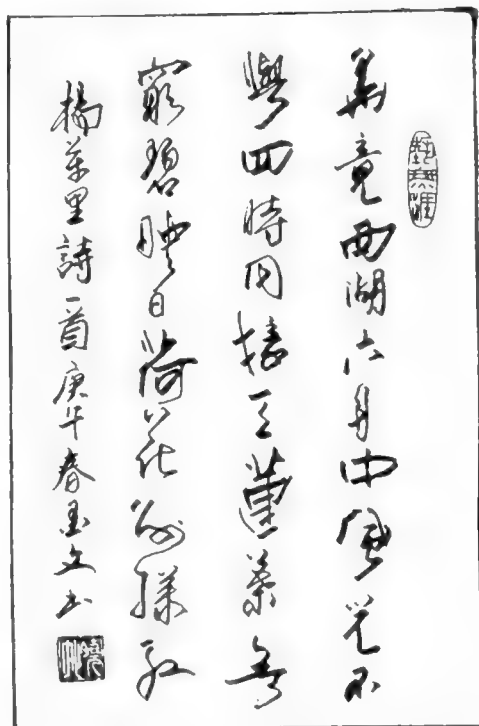 藝無涯
畢竟西湖六月中風光不
與四時同接天蓮葉無
窮碧映日荷花別樣紅
楊萬里詩一首庚午春文书